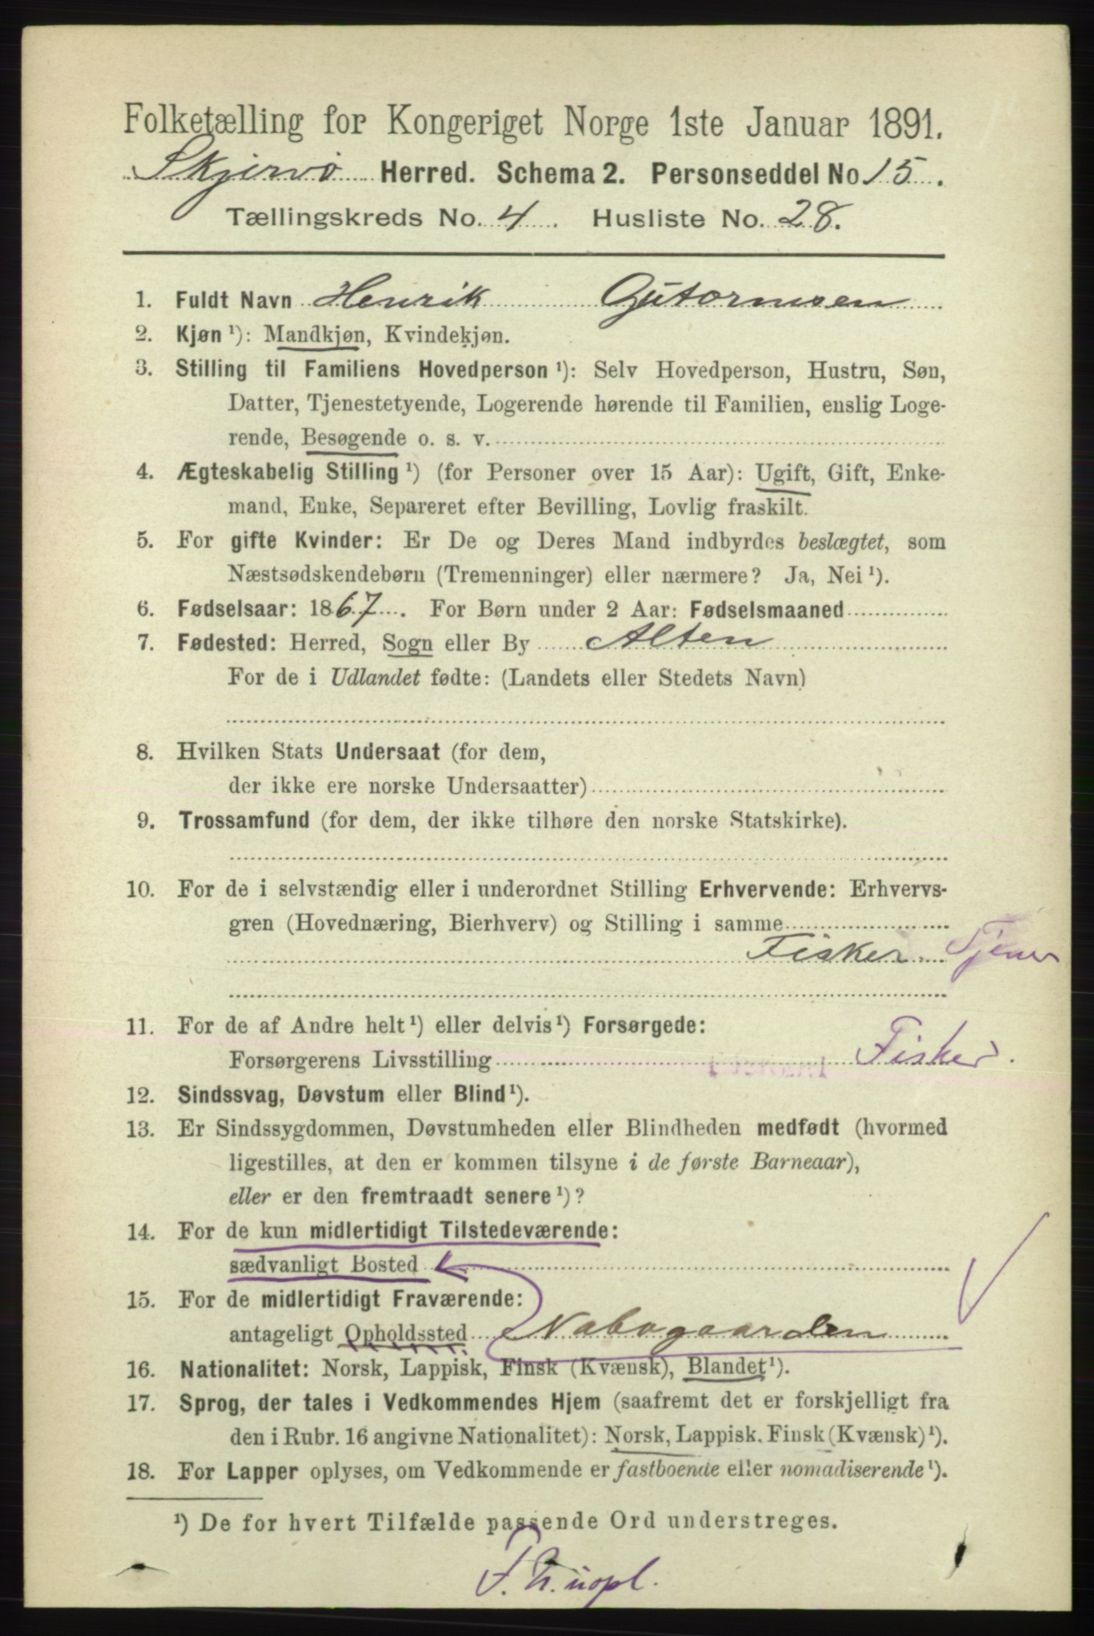 Folketælling for Kongeriget Norge 1ste Januar 1891.
Skjervø Herred. Schema 2. Personseddel No 15.
Tællingskreds No. 4. Husliste No. 28.
1. Fuldt Navn Henrik Gutormsen
2. Kjøn ¹): Mandkjøn, Kvindekjøn.
3. Stilling til Familiens Hovedperson ¹): Selv Hovedperson, Hustru, Søn,
Datter, Tjenestetyende, Logerende hørende til Familien, enslig Loge-
rende, Besøgende o. s. v.
4. Ægteskabelig Stilling ¹) (for Personer over 15 Aar): Ugift, Gift, Enke-
mand, Enke, Separeret efter Bevilling, Lovlig fraskilt.
5. For gifte Kvinder: Er De og Deres Mand indbyrdes beslægtet, som
Næstsødskendebørn (Tremenninger) eller nærmere? Ja, Nei ¹).
6. Fødselsaar: 1867. For Børn under 2 Aar: Fødselsmaaned
7. Fødested: Herred, Sogn eller By Alten
For de i Udlandet fødte: (Landets eller Stedets Navn)
8. Hvilken Stats Undersaat (for dem,
der ikke ere norske Undersaatter)
9. Trossamfund (for dem, der ikke tilhøre den norske Statskirke).
10. For de i selvstændig eller i underordnet Stilling Erhvervende: Erhvervs-
gren (Hovednæring, Bierhverv) og Stilling i samme
Fisker Tjener
11. For de af Andre helt ¹) eller delvis ¹) Forsørgede:
Forsørgerens Livsstilling Fisker.
12. Sindssvag, Døvstum eller Blind ¹).
13. Er Sindssygdommen, Døvstumheden eller Blindheden medfødt (hvormed
ligestilles, at den er kommen tilsyne i de første Barneaar),
eller er den fremtraadt senere ¹)?
14. For de kun midlertidigt Tilstedeværende:
sædvanligt Bosted
15. For de midlertidigt Fraværende:
antageligt Opholdssted Nabogaarden
16. Nationalitet: Norsk, Lappisk, Finsk (Kvænsk), Blandet ¹).
17. Sprog, der tales i Vedkommendes Hjem (saafremt det er forskjelligt fra
den i Rubr. 16 angivne Nationalitet): Norsk, Lappisk. Finsk (Kvænsk) ¹).
18. For Lapper oplyses, om Vedkommende er fastboende eller nomadiserende ¹).
¹) De for hvert Tilfælde passende Ord understreges.